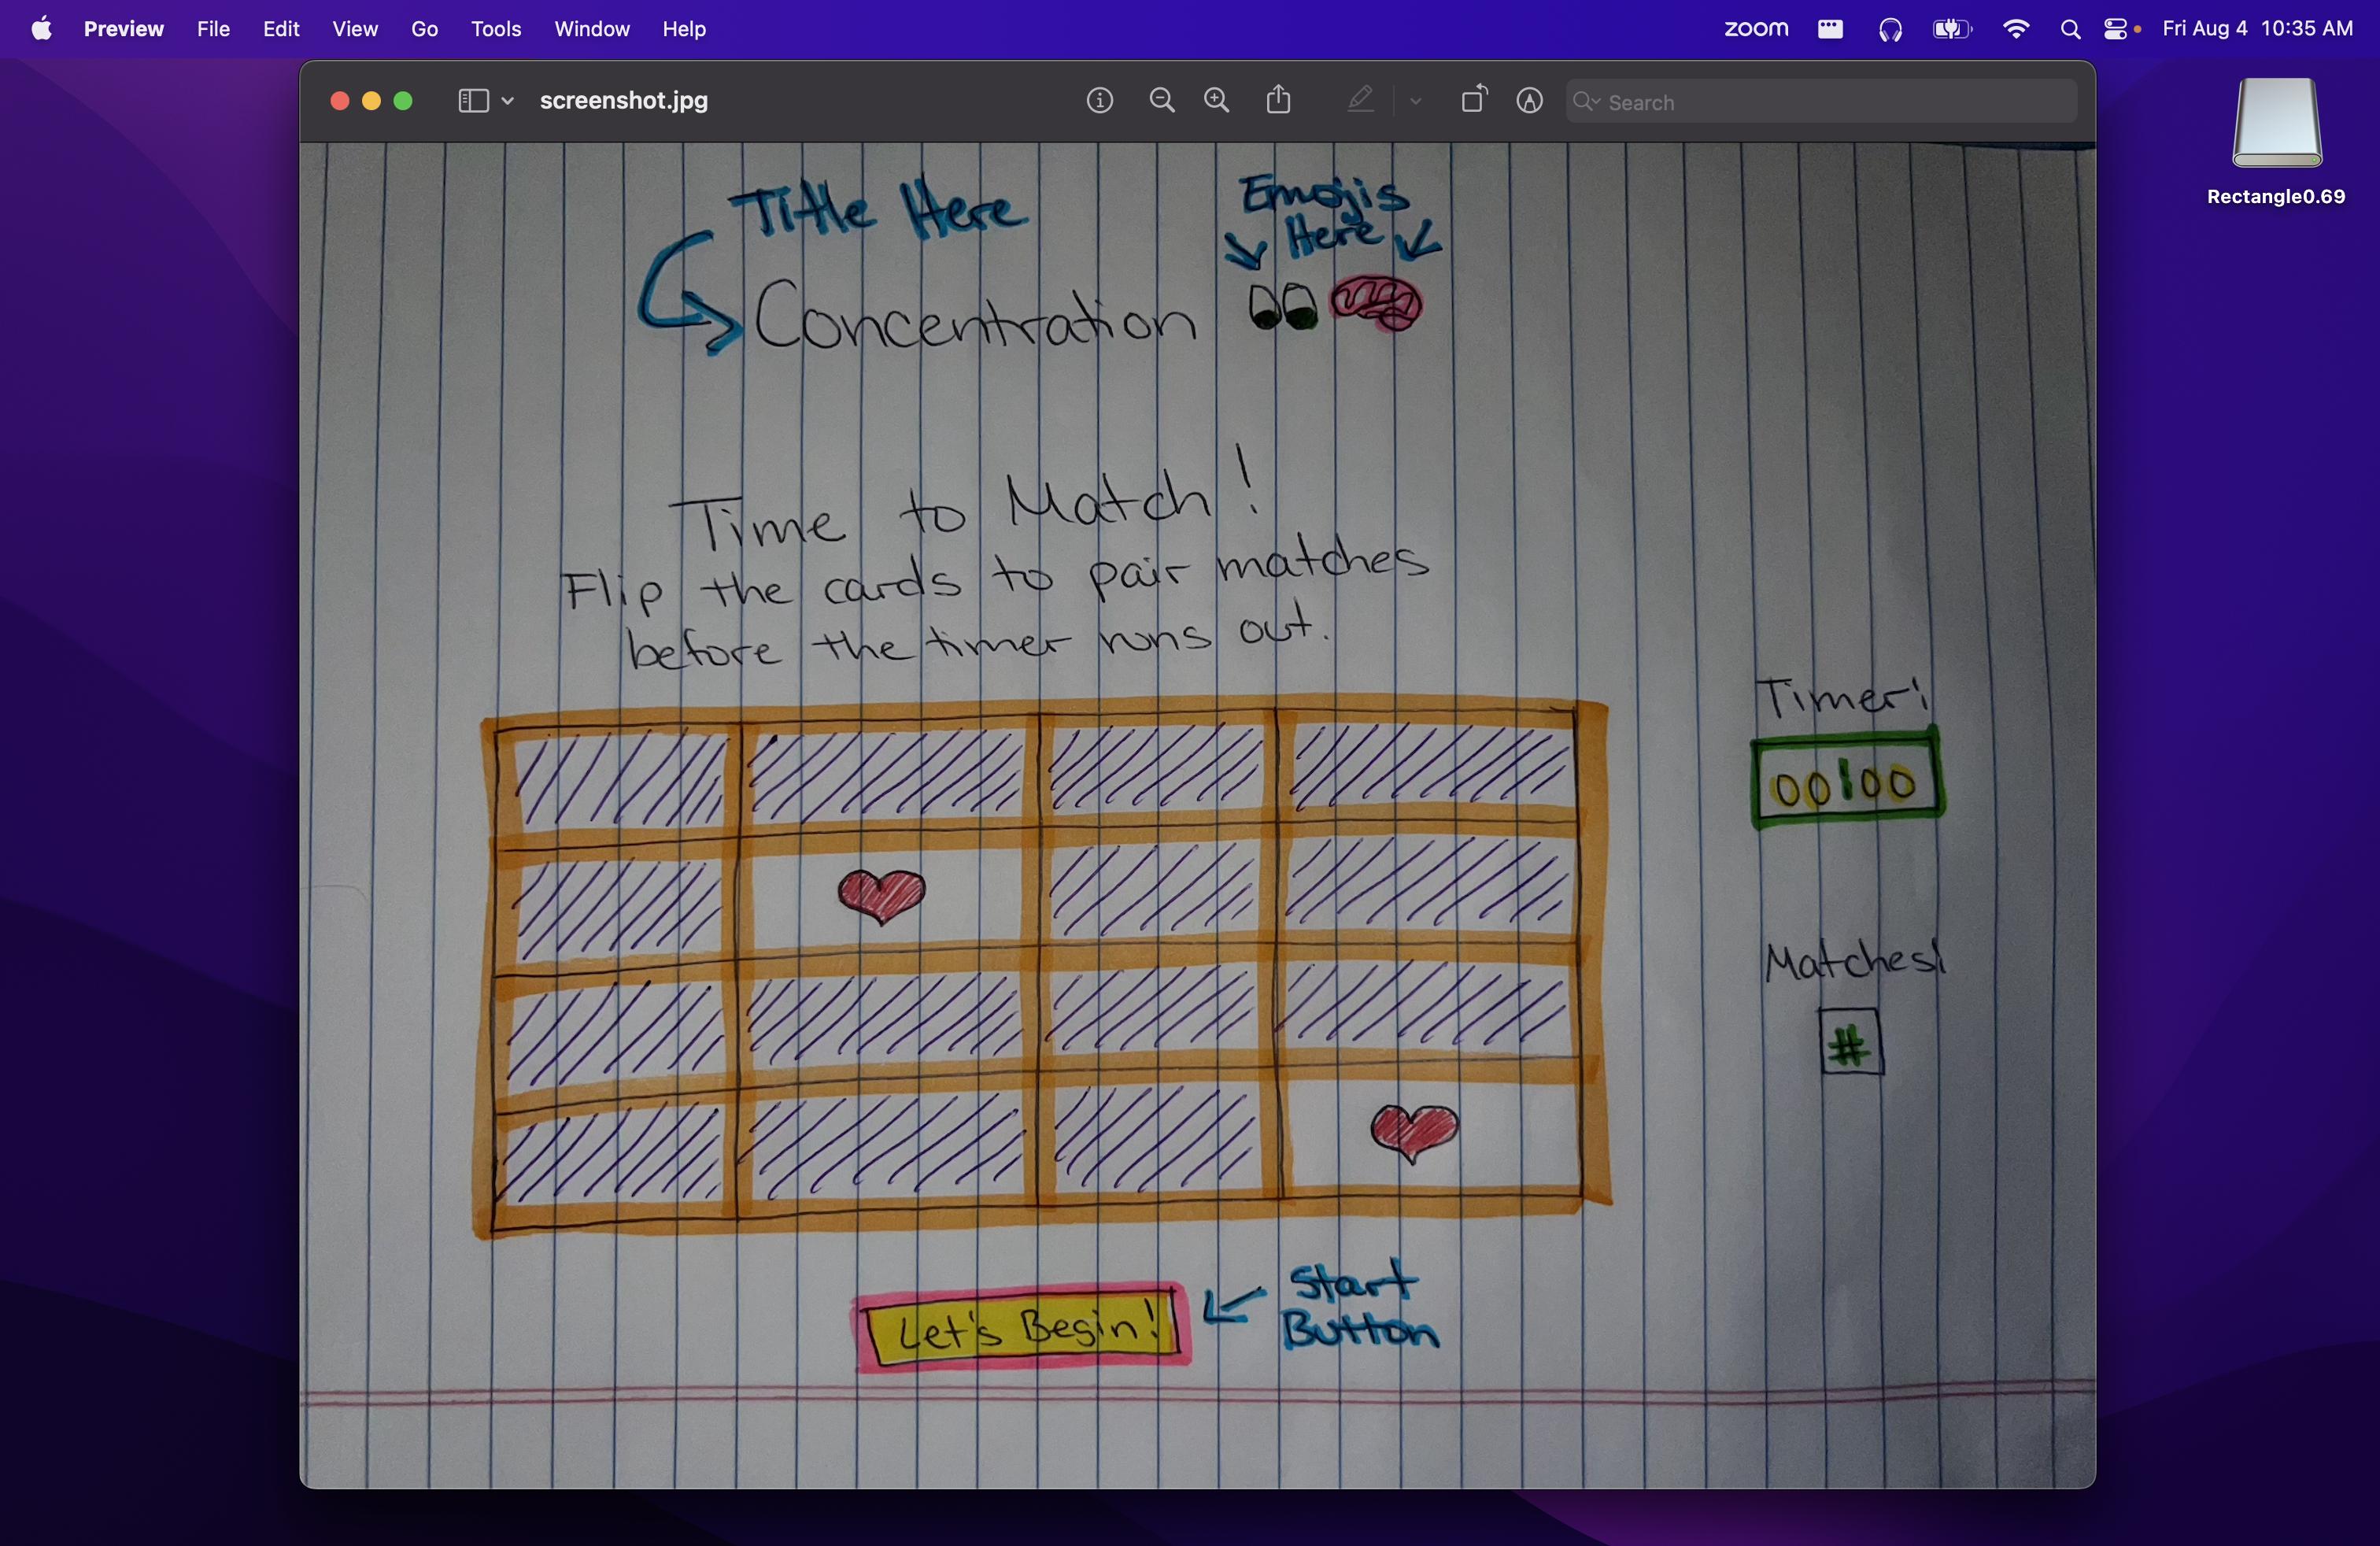 Preview File Edit View Go Tools Window Help
zoom
Fri Aug 4 10:35 AM
screenshot.jpg
Search
Rectangle0.69
Title Here
Emojis
Here
Concentration
Time to Match!
Flip the cards to pair matches
before the timer runs out.
Timer:
00:00
Matches:
#
Let's Begin!
Start
Button